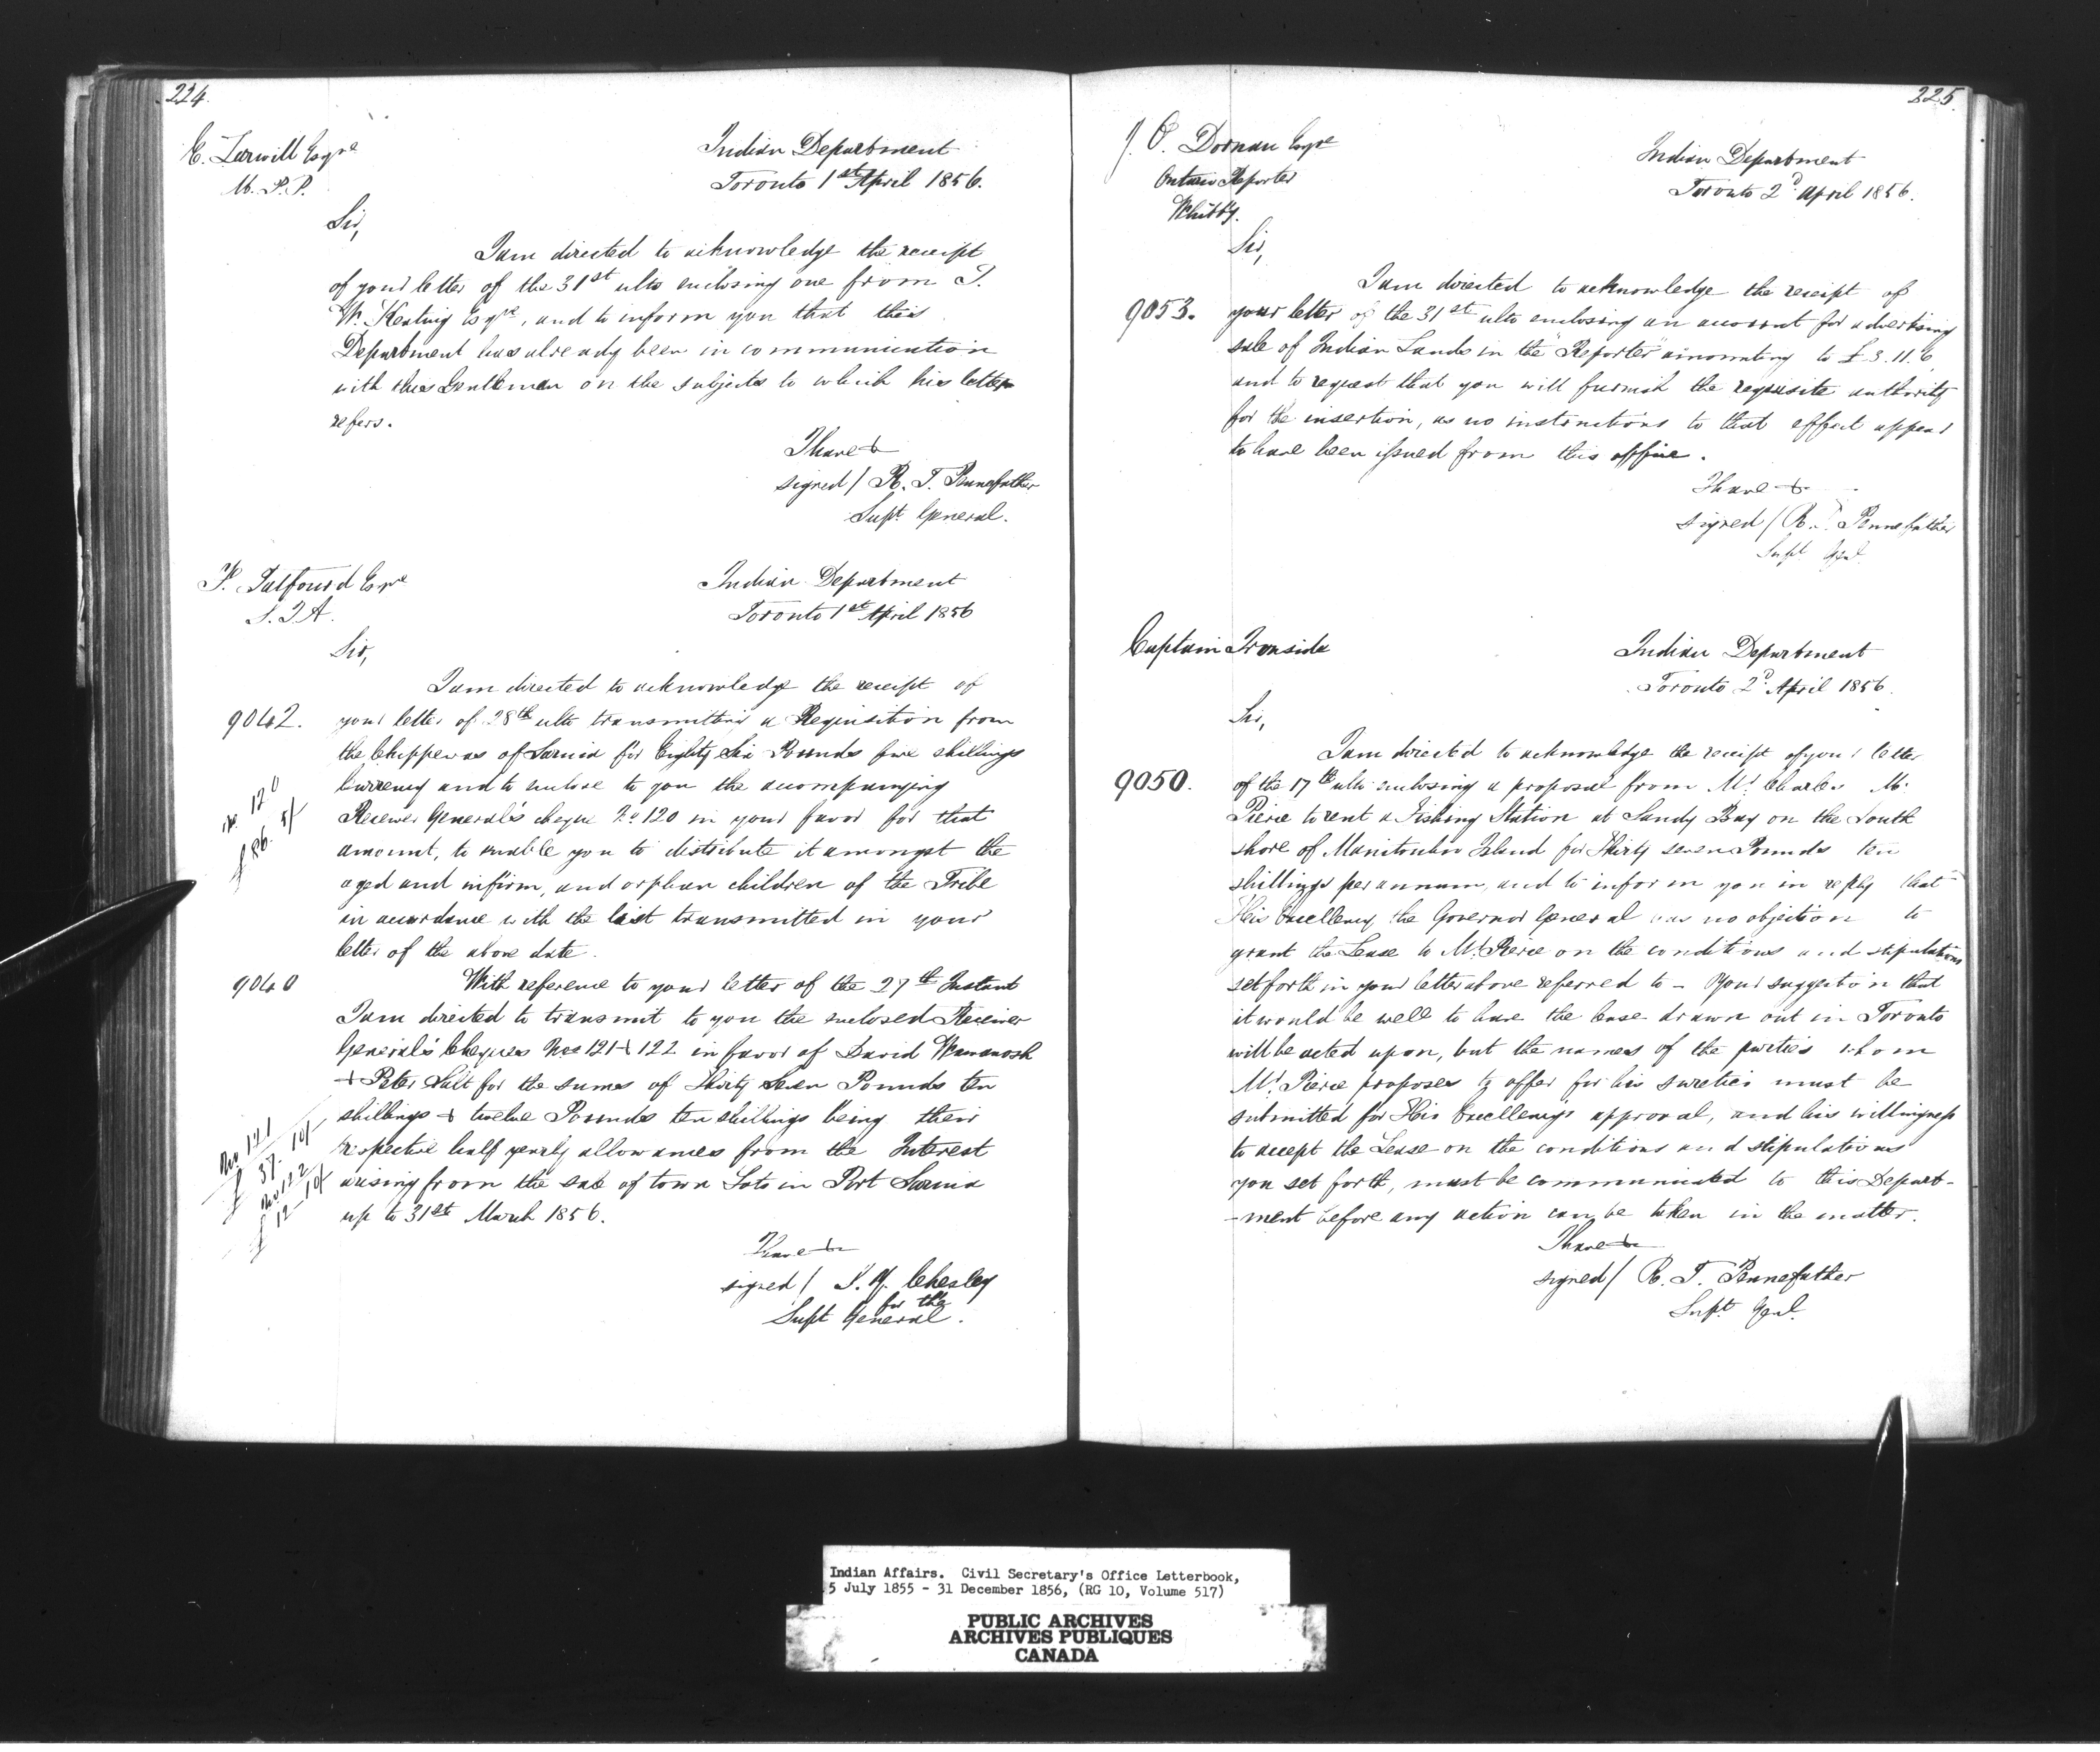 224.
E. Larwill Esqre
M. P. P.
Indian Department
Toronto 1st April 1856.
Sir,
I am directed to acknowledge the receipt
of your letter of the 31st ulto enclosing one from J.
W. Keating Esqre, and to inform you that this
Department has already been in communication
with this Gentleman on the subjects to which his letter
refers.
I have &
signed / R. T. Pennefather
Supt. General.
F. Talfourd Esqre
S. I. A.
Indian Department
Toronto 1st April 1856
Sir,
I am directed to acknowledge the receipt of
9042. your letter of 28th ulto transmitting a Requisition from
the Chippewas of Sarnia for Eighty Six Pounds five shillings
Currency and to enclose to you the accompanying
No. 120
£86. 5/
Receiver General's cheque No 120 in your favor for that
amount, to enable you to distribute it amongst the
aged and infirm, and orphan children of the Tribe
in accordance with the list transmitted in your
letter of the above date.
9040 With reference to your letter of the 27th Instant
I am directed to transmit to you the enclosed Receiver
General's Cheques Nos 121 & 122 in favor of David Wawanosh
& Peter Salt for the sums of Thirty Seven Pounds ten
shillings & twelve Pounds ten shillings being their
No 121
£ 37. 10/-
No 122
£ 12 - 10/
respective half yearly allowances from the Interest
arising from the sale of town Lots in Port Sarnia
up to 31st March 1856.
I have &
signed / S. Y. Chesley
for the
Supt General.
225.
J. O. Dornan Esqre
Ontario Reporter
Whitby.
Indian Department
Toronto 2d April 1856.
Sir,
I am directed to acknowledge the receipt of
9053. your letter of the 31st ulto enclosing an account for advertising
sale of Indian Lands in the "Reporter" amounting to £3.11.6
and to request that you will furnish the requisite authority
for the insertion, as no instructions to that effect appear
to have been issued from this office.
I have &
signed / R. T. Pennefather
Supt Genl
Captain Ironside
Indian Department
Toronto 2d April 1856.
Sir,
I am directed to acknowledge the receipt of your letter
9050. of the 17th ulto enclosing a proposal from Mr Charles M.
Pierce to rent a Fishing Station at Sandy Bay on the South
shore of Manitoulin Island for Thirty seven Pounds ten
shillings per annum, and to inform you in reply that
His Excellency the Governor General has no objection to
grant the Lease to Mr. Pierce on the conditions and stipulations
set forth in your letter above referred to - Your suggestion that
it would be well to have the lease drawn out in Toronto
will be acted upon, but the names of the parties whom
Mr. Pierce proposes to offer for his sureties must be
submitted for His Excellency's approval, and his willingness
to accept the Lease on the conditions and stipulations
you set forth, must be communicated to this Depart-
-ment before any action can be taken in the matter.
I have &
signed / R. T. Pennefather
Supt. Genl.
Indian Affairs. Civil Secretary's Office Letterbook,
5 July 1855 - 31 December 1856, (RG 10, Volume 517)
PUBLIC ARCHIVES
ARCHIVES PUBLIQUES
CANADA